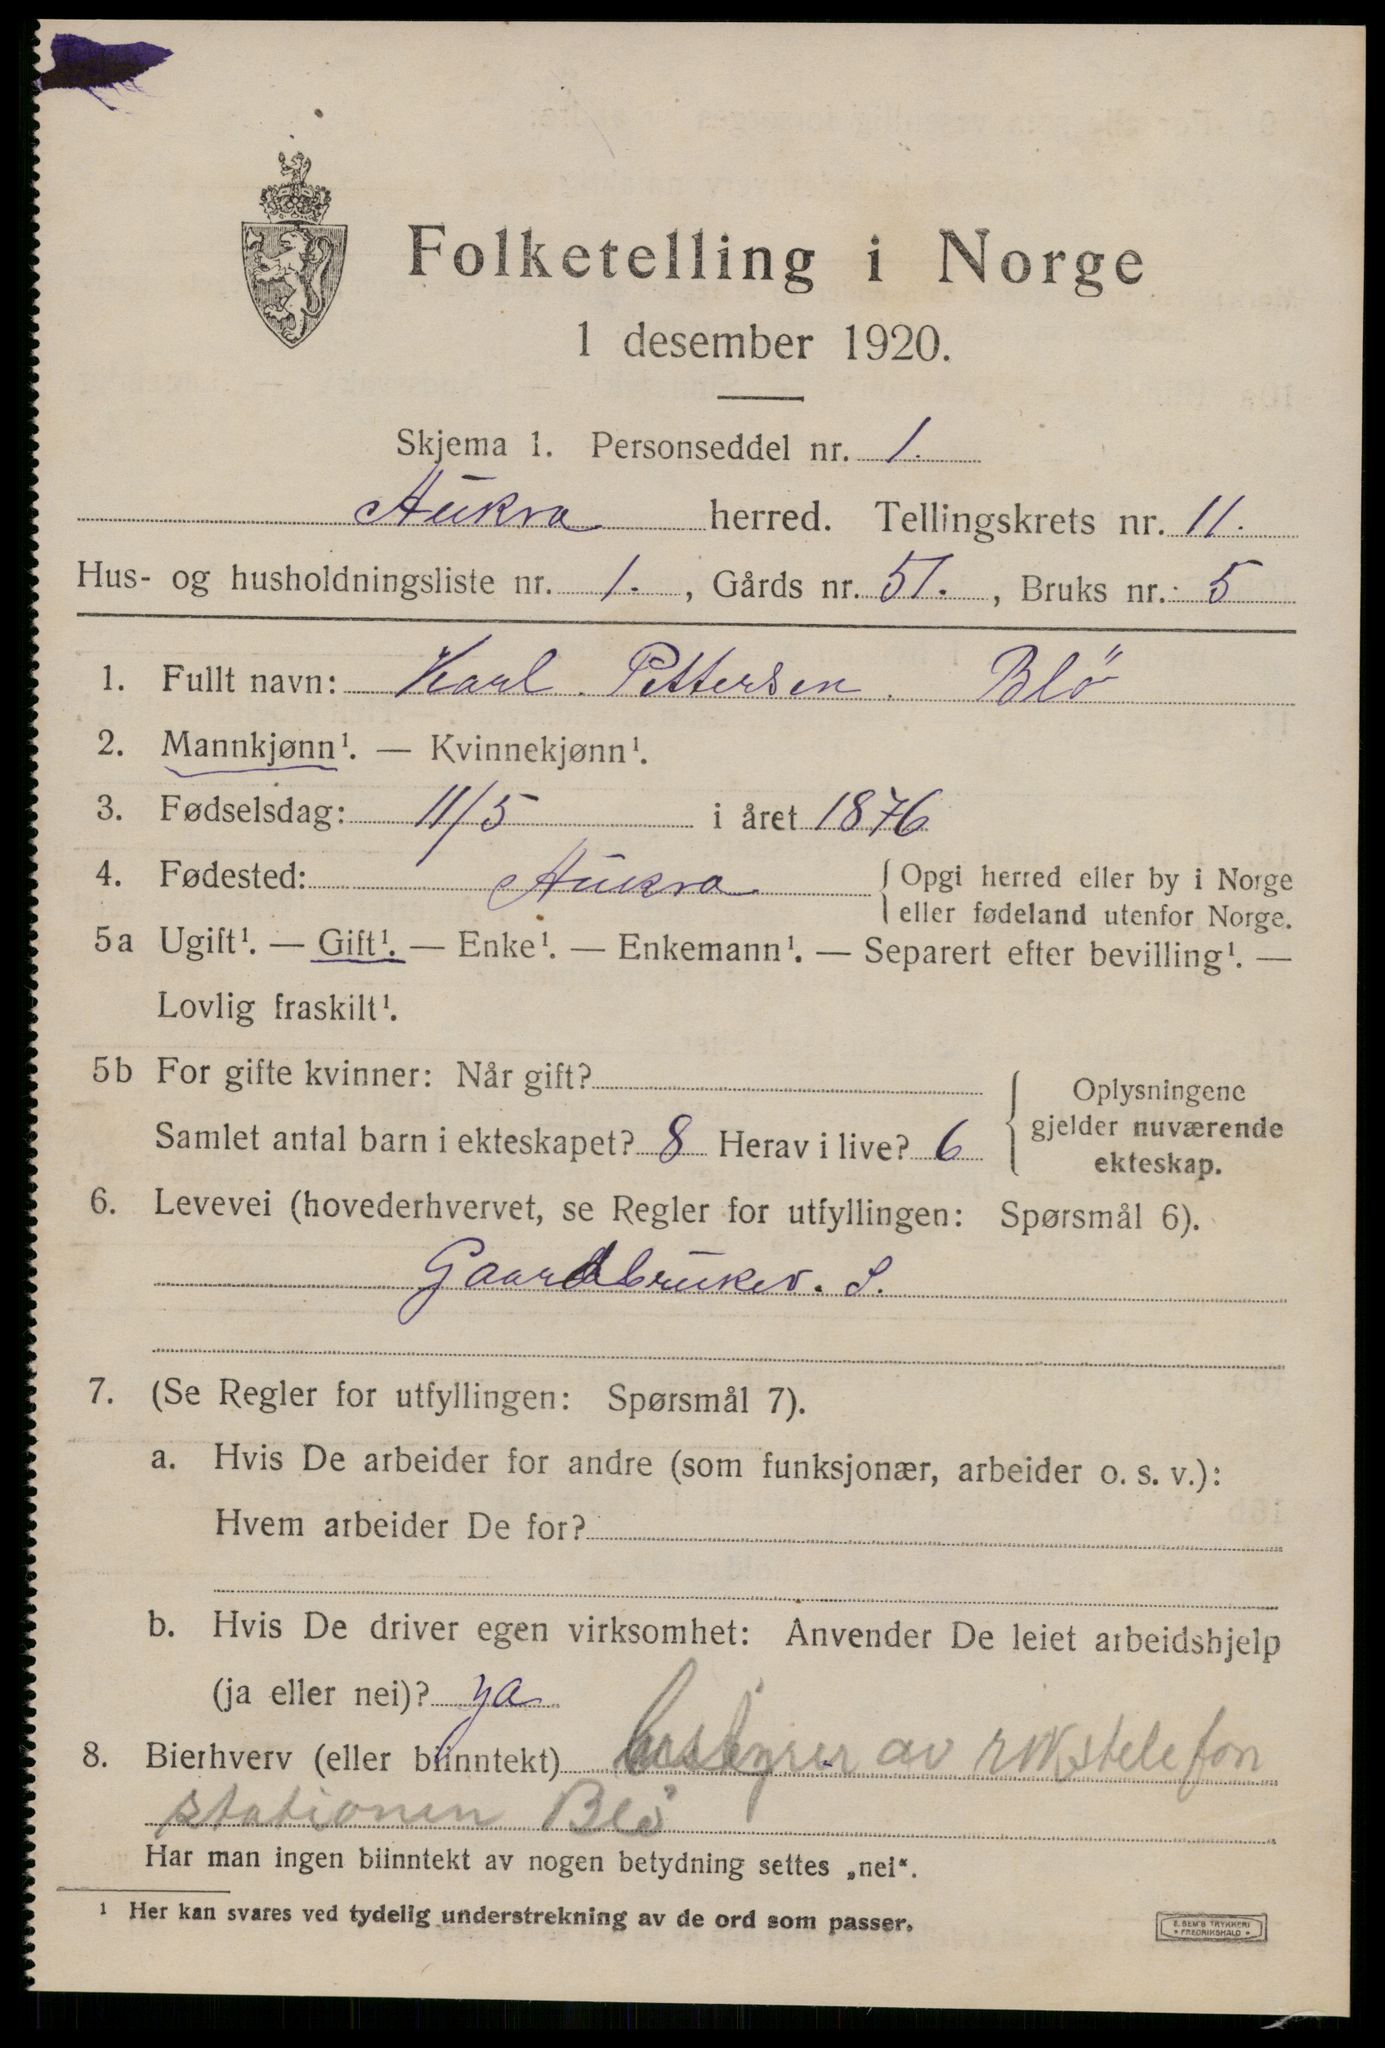 Folketelling i Norge
1 desember 1920.
Skjema 1. Personseddel nr. 1.
Aukra herred. Tellingskrets nr. 11.
Hus- og husholdningsliste nr. 1. , Gårds nr. 51. , Bruks nr. 5
1. Fullt navn: Karl Pettersen. Blö
2. Mannkjønn¹. — Kvinnekjønn¹.
3. Fødselsdag: 11/5 i året 1876
4. Fødested: Aukra { Opgi herred eller by i Norge
eller fødeland utenfor Norge.
5a Ugift¹. — Gift¹. — Enke¹. — Enkemann¹. — Separert efter bevilling¹. —
Lovlig fraskilt¹.
5b For gifte kvinner: Når gift?
Samlet antal barn i ekteskapet? 8 Herav i live? 6
Oplysningene
gjelder nuværende
ekteskap.
6. Levevei (hovederhvervet, se Regler for utfyllingen: Spørsmål 6).
Gaardbruker. S.
7. (Se Regler for utfyllingen: Spørsmål 7).
a. Hvis De arbeider for andre (som funksjonær, arbeider o. s. v.):
Hvem arbeider De for?
b. Hvis De driver egen virksomhet: Anvender De leiet arbeidshjelp
(ja eller nei)? ja
8. Bierhverv (eller biinntekt) bestyrer av rikstelefon
stationen Blö
Har man ingen biinntekt av nogen betydning settes „nei“.
¹ Her kan svares ved tydelig understrekning av de ord som passer.
E. SEM'S TRYKKERI
• FREDRIKSHALD •